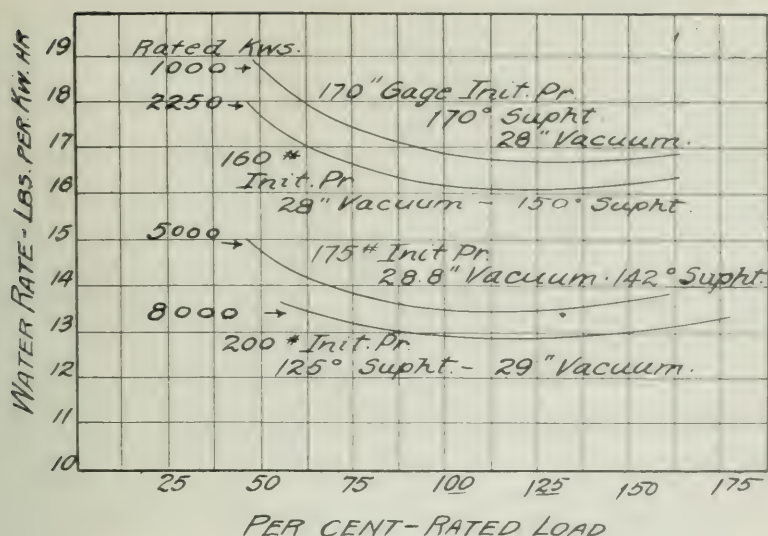 WATER RATE-LBS. PER. KW. HR
19
18
17
16
15
14
13
12
11
10
Rated Kws.
1000
170" Gage Init. Pr.
170° Supht
28" Vacuum.
2250
160 #
Init. Pr
28" Vacuum - 150° Supht
5000
175 # Init Pr.
28.8" Vacuum. 142° Supht.
8000
200 # Init. Pr.
125° Supht. - 29" Vacuum.
25 50 75 100 125 150 175
PER CENT-RATED LOAD